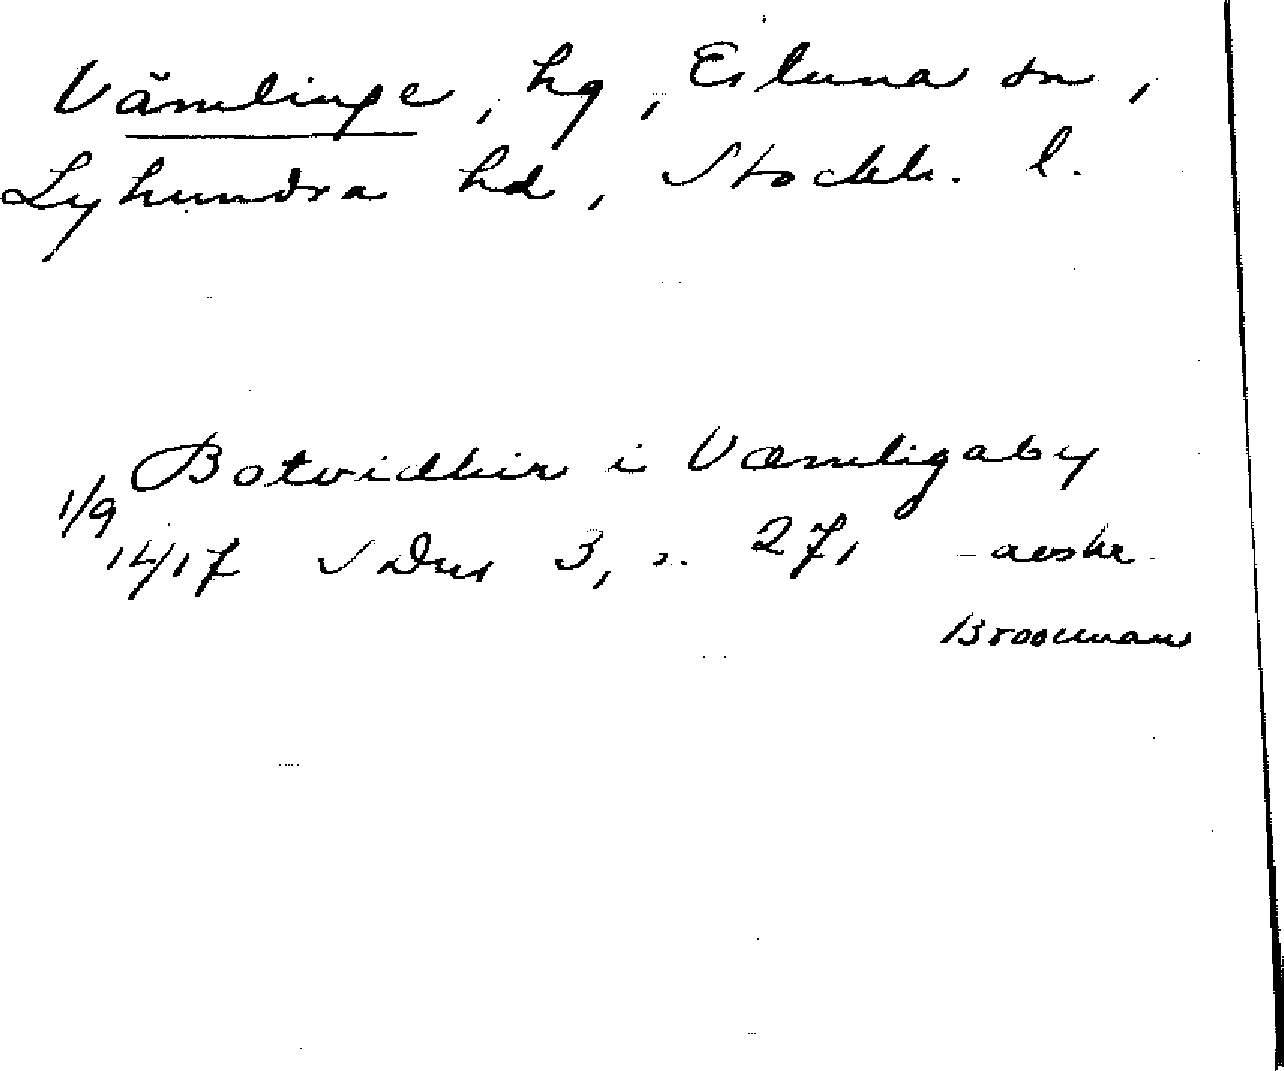 Vämlinge, hg, Estuna sn,
Lyhundra hd, Stockh. l.
Botvidhir i Væmligaby
1/9
1417 SDns 3, s. 27, avskr
Brooman